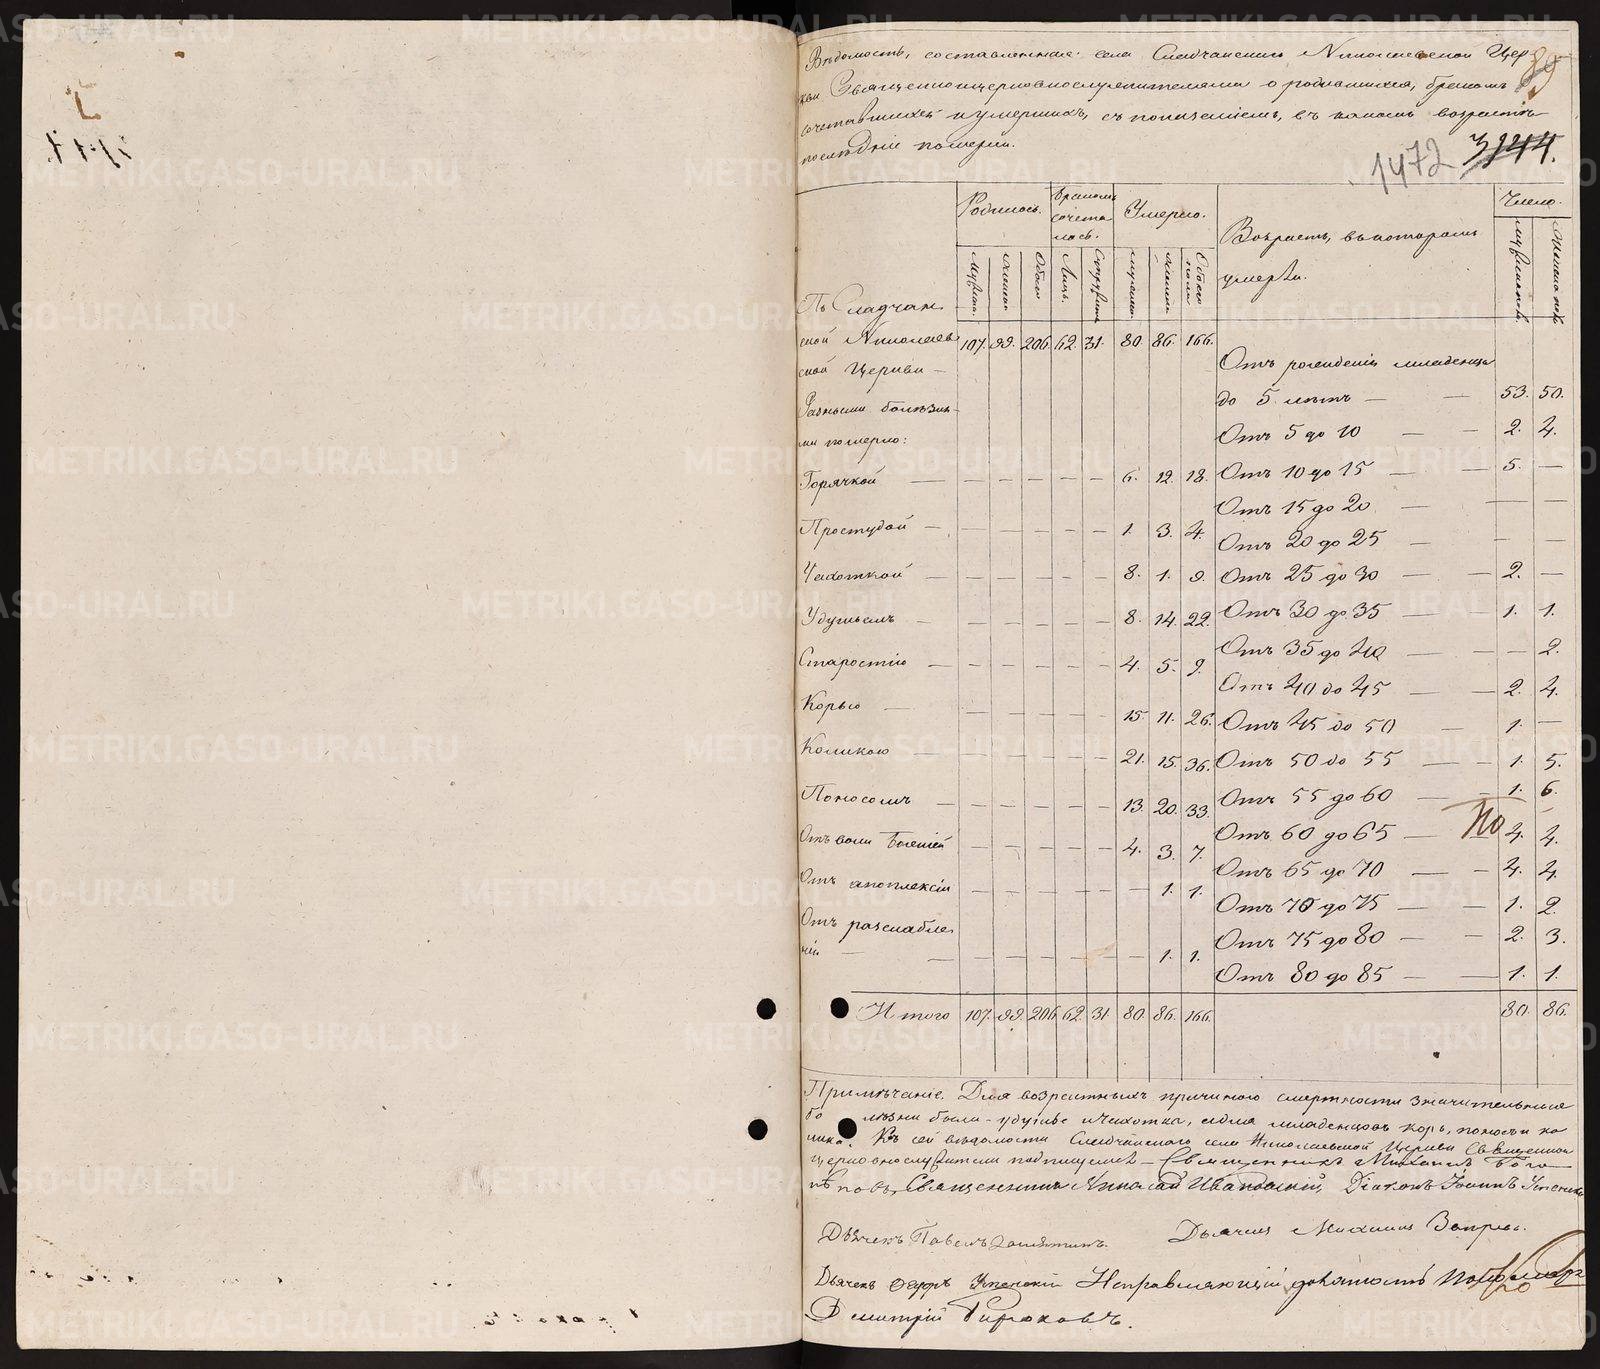 Вѣдомость, составленная села Сладчанскаго Николаевской Цер-
кви Священноцерковнослужителями о родившихся, бракомъ
сочетавшихся и умершихъ, съ показаніемъ, въ какомъ возрастѣ
послѣдніе померли.
89
1472 3144.
Родилось. Бракомъ сочеталось. Умерло. Возрастъ, въ которомъ умерли. Число.
мужеска. женска. Обоего Лицъ. Супружествъ мужеска. женска. Обоего пола мужескаго. женскаго
Въ Сладчан
ской Николаев 107. 99. 206. 62. 31. 80. 86. 166.
ской Церкви — Отъ рожденія младенца
Разными болѣзня- до 5 лѣтъ — — 53. 50.
ми померло: Отъ 5 до 10 — — 2. 4.
Горячкой — — — — — — 6. 12. 18. Отъ 10 до 15 — — 5. —
Отъ 15 до 20 — — —
Простудой — — — — — — 1. 3. 4. Отъ 20 до 25 — — —
Чахоткой — — — — — — 8. 1. 9. Отъ 25 до 30 — — 2. —
Удушьемъ — — — — — — 8. 14. 22. Отъ 30 до 35 — — 1. 1.
Старостію — — — — — — 4. 5. 9. Отъ 35 до 40 — — — 2.
Отъ 40 до 45 — — 2. 4.
Корью — — — — — — 15. 11. 26. Отъ 45 до 50 — 1. —
Коликою — — — — — — 21. 15. 36. Отъ 50 до 55 — — 1. 5.
Поносомъ — — — — — — 13. 20. 33. Отъ 55 до 60 — — 1. 6.
Отъ 60 до 65 — 4. 4.
— — — — — 4. 3. 7. Отъ 65 до 70 — — 4. 4.
Отъ апоплексіи — — — — — — 1. 1. Отъ 70 до 75 — — 1. 2.
Отъ разслабле Отъ 75 до 80 — — 2. 3.
нія — — — — — — — 1. 1. Отъ 80 до 85 — — 1. 1.
Итого 107. 99. 206. 62. 31. 80. 86. 166. 80. 86.
Примѣчаніе. Для возрастныхъ причиною смертности значительныя
бо лѣзни были - удушье и чахотка, а для младенцовъ корь, поносъ и ко
лика. Къ сей вѣдомости Сладчанскаго села Николаевской Церкви Священно
церковнослужители подпишемся — Священникъ Михаилъ Бого
лѣповъ, Священникъ Николай Діаконъ Іоаннъ Успенскій
Дьячекъ Павелъ Замятинъ. Дьячекъ Михаилъ
Дьячекъ Успенскій Исправляющій должность
Димитрій Бирюковъ.
METRIKI.GASO-URAL.RU